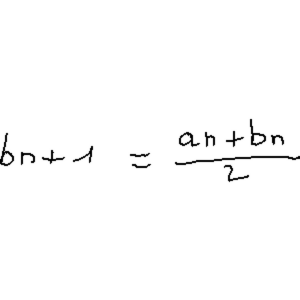 bn+1 = \frac{an+bn}{2}